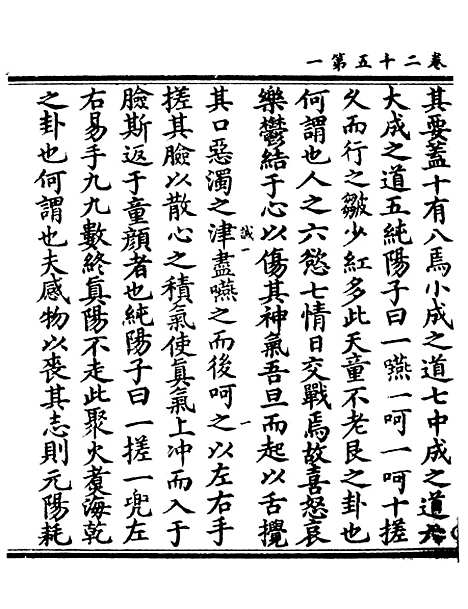 卷二十五第一
其要蓋十有八焉小成之道七中成之道六
大成之道五純陽子曰一嚥一呵一呵十搓
久而行之皺少紅多此天童不老艮之卦也
何謂也人之六慾七情日交戰焉故喜怒哀
樂鬱結于心以傷其神氣吾旦而起以舌攪
誠一 一
其口惡濁之津盡嚥之而後呵之以左右手
搓其臉以散心之積氣使眞氣上冲而入于
臉斯返于童顏者也純陽子曰一搓一兜左
右易手九九數終眞陽不走此聚火煮海乾
之卦也何謂也夫感物以喪其志則元陽耗